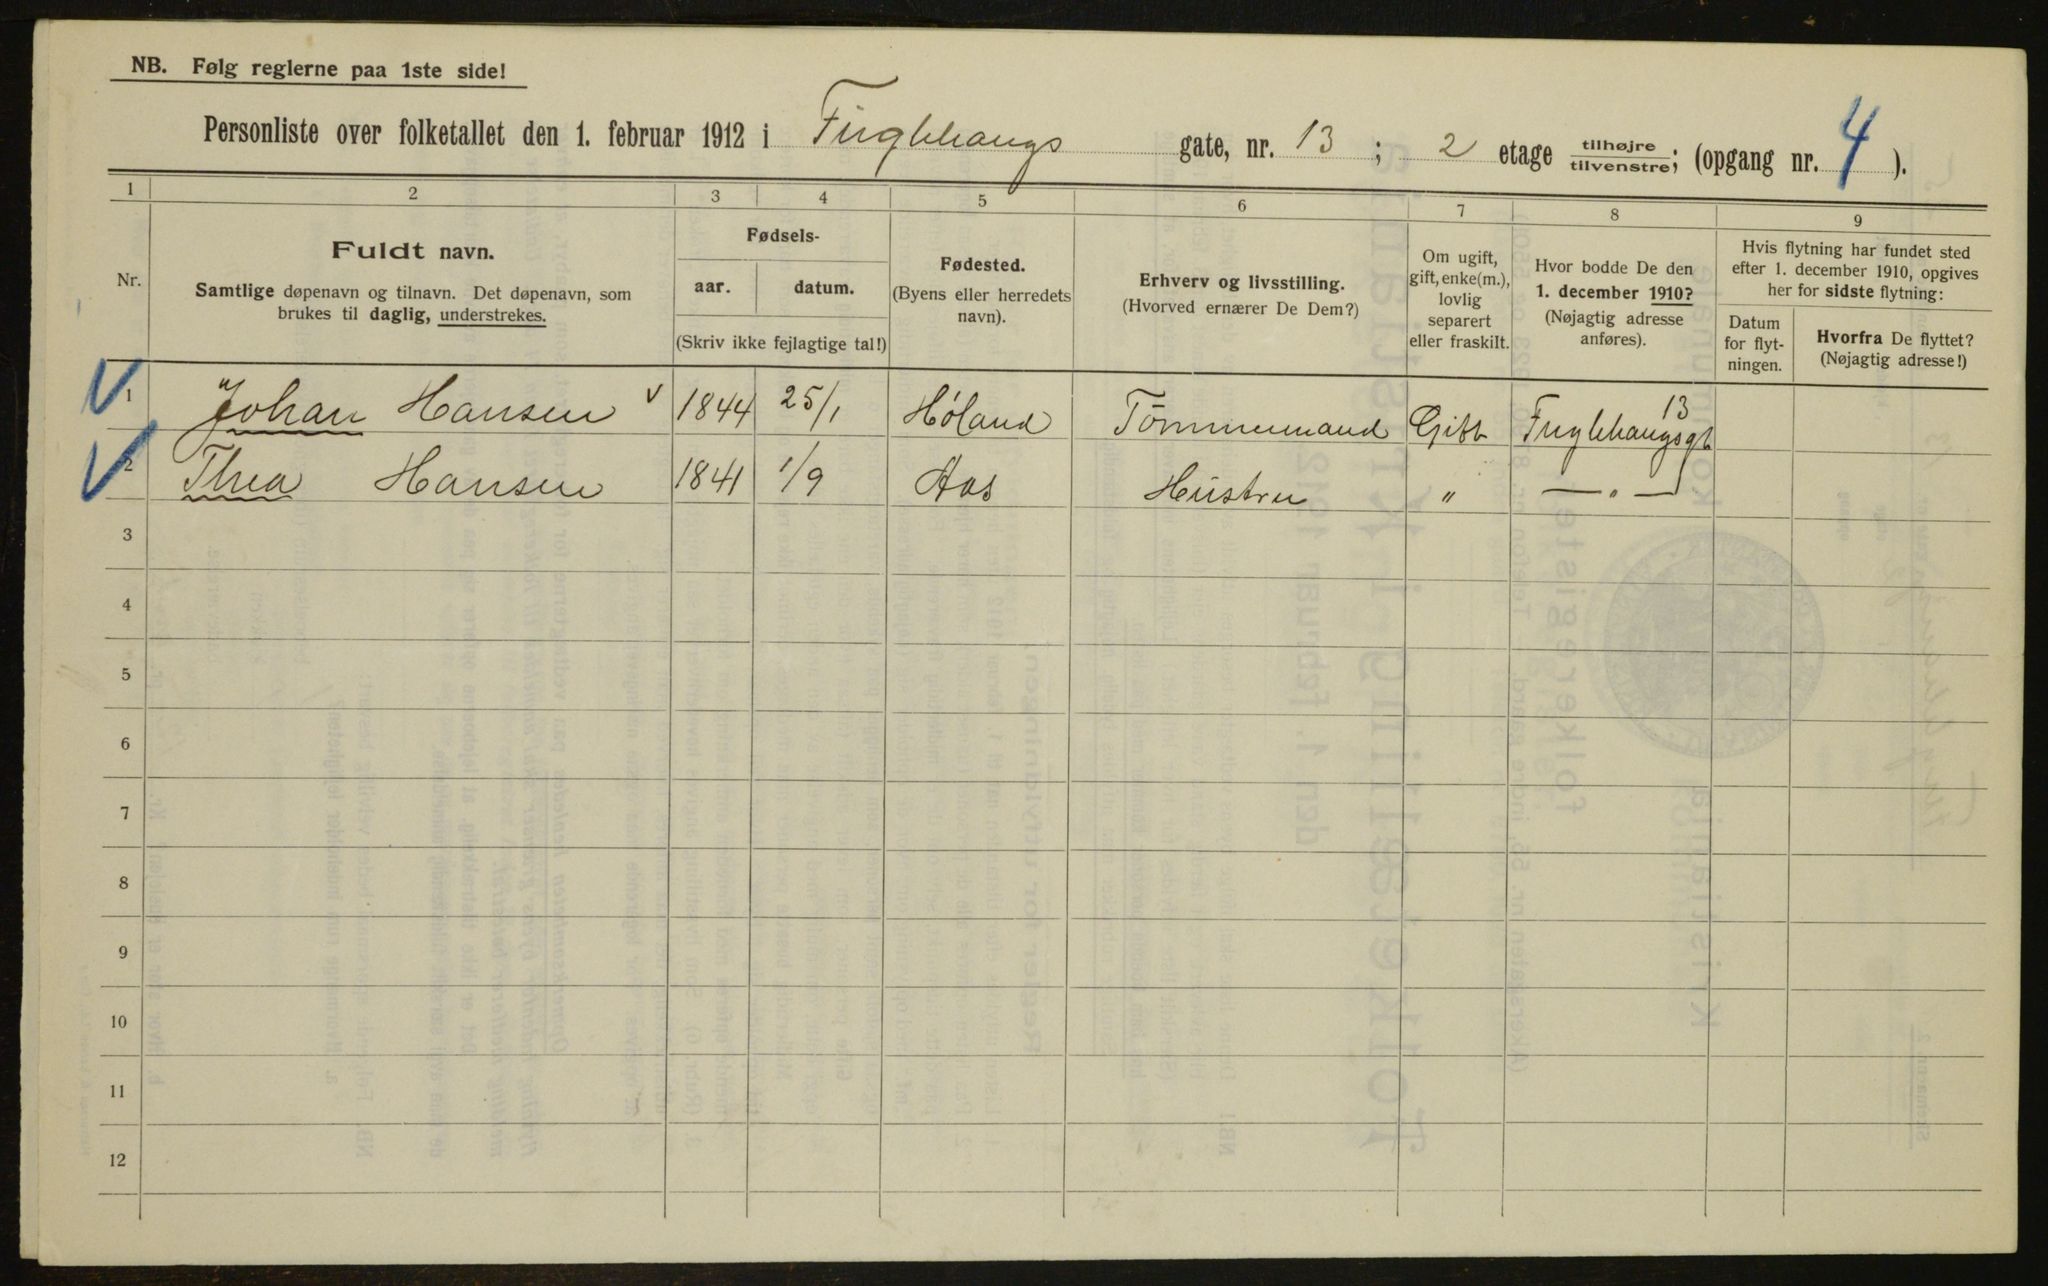 NB. Følg reglerne paa 1ste side!
Personliste over folketallet den 1. februar 1912 i Fuglehaugs gate, nr. 13 ; 2 etage tilhøjre/tilvenstre; (opgang nr. 4 ).
1 2 3 4 5 6 7 8 9
Nr.
Fuldt navn.
Samtlige døpenavn og tilnavn. Det døpenavn, som
brukes til daglig, understrekes.
Fødsels-
aar. datum.
(Skriv ikke fejlagtige tal!)
Fødested.
(Byens eller herredets
navn).
Erhverv og livsstilling.
(Hvorved ernærer De Dem?)
Om ugift,
gift, enke(m.),
lovlig
separert
eller fraskilt.
Hvor bodde De den
1. december 1910?
(Nøjagtig adresse
anføres).
Hvis flytning har fundet sted
efter 1. december 1910, opgives
her for sidste flytning:
Datum
for flyt-
ningen.
Hvorfra De flyttet?
(Nøjagtig adresse!)
1 Johan Hansen 1844 25/1 Høland Tömmermand Gift Fuglehaugsgt 13
2 Thea Hansen 1841 1/9 Aas Hustru " — " —
3
4
5
6
7
8
9
10
11
12